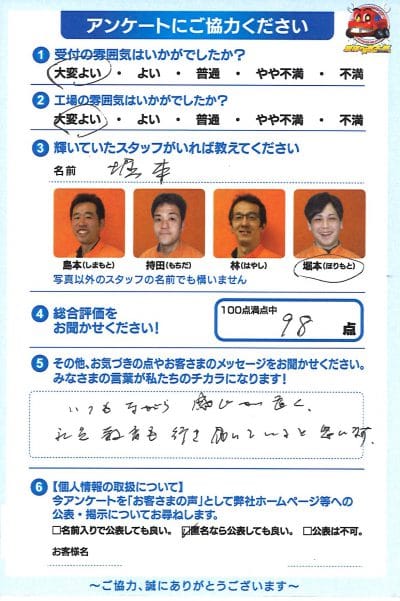 アンケートにご協力ください
1 受付の雰囲気はいかがでしたか?
大変よい ・ よい ・ 普通 ・ やや不満 ・ 不満
2 工場の雰囲気はいかがでしたか?
大変よい ・ よい ・ 普通 ・ やや不満 ・ 不満
3 輝いていたスタッフがいれば教えてください
名前 堀本
島本(しまもと) 持田(もちだ) 林(はやし) 堀本(ほりもと)
写真以外のスタッフの名前でも構いません
4 総合評価を
お聞かせください!
100点満点中
98 点
5 その他、お気づきの点やお客さまのメッセージをお聞かせください。
みなさまの言葉が私たちのチカラになります!
いつもながら 感じが良く、
社員教育も行き届いていると思います。
6 【個人情報の取扱について】
今アンケートを「お客さまの声」として弊社ホームページ等への
公表・掲示についてお尋ねします。
□名前入りで公表しても良い。 ☑匿名なら公表しても良い。 □公表は不可。
お客様名
～ご協力、誠にありがとうございます～